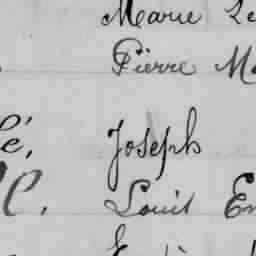 Marie Le
Pierre Ma
é, Joseph
e. Louis Em